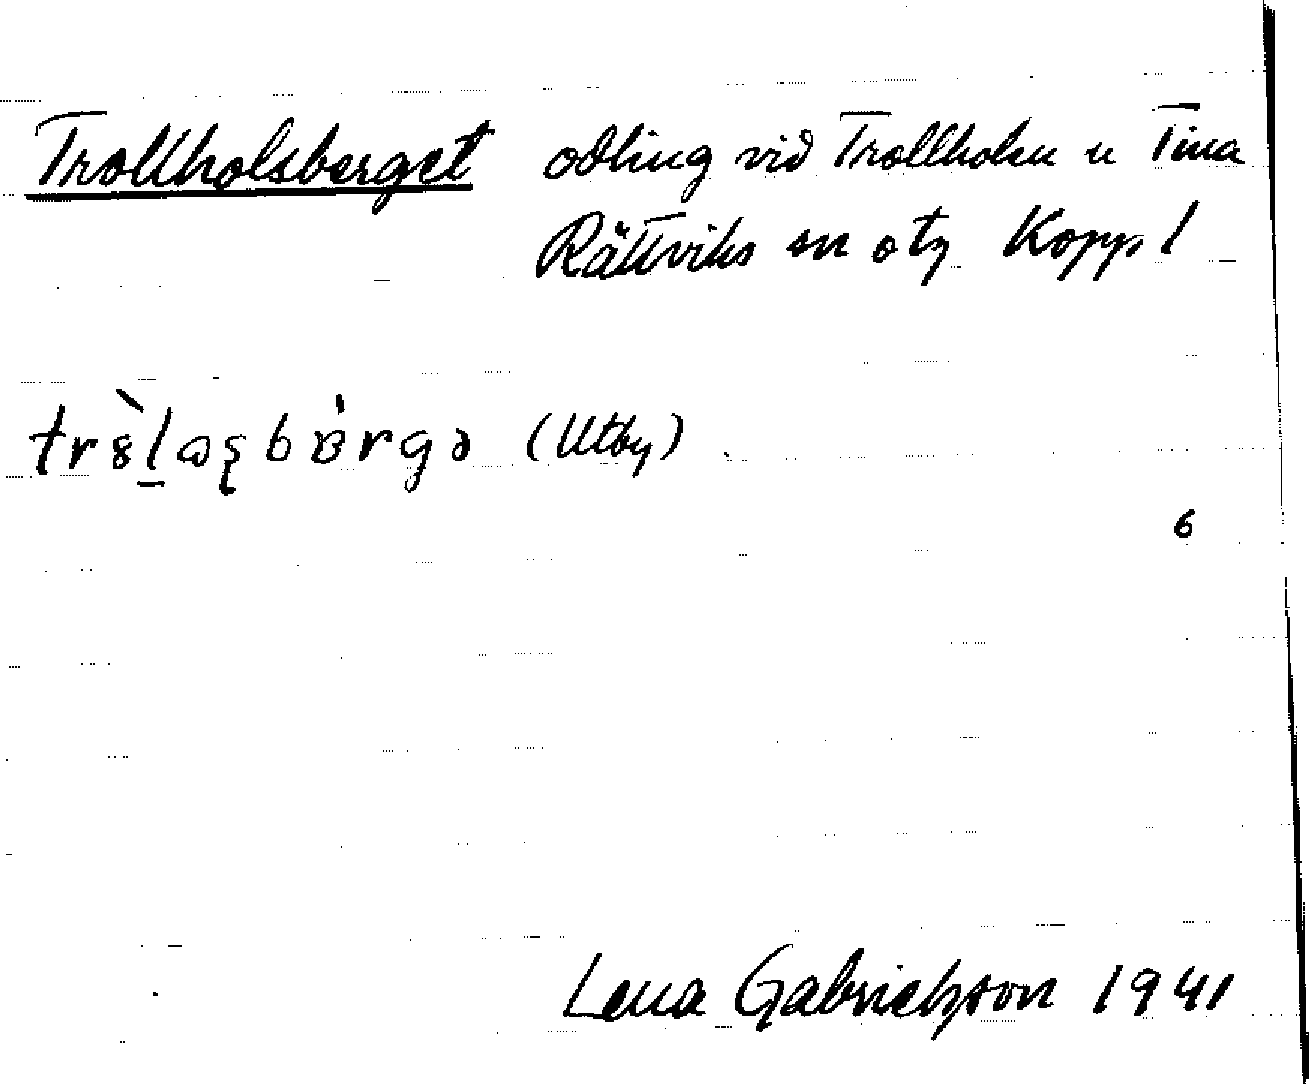 Trollholsberget odling vid Trollholen u Tina
Rättviks sn o tg Kopp l
(Utby)
6
Lena Gabrielsson 1941